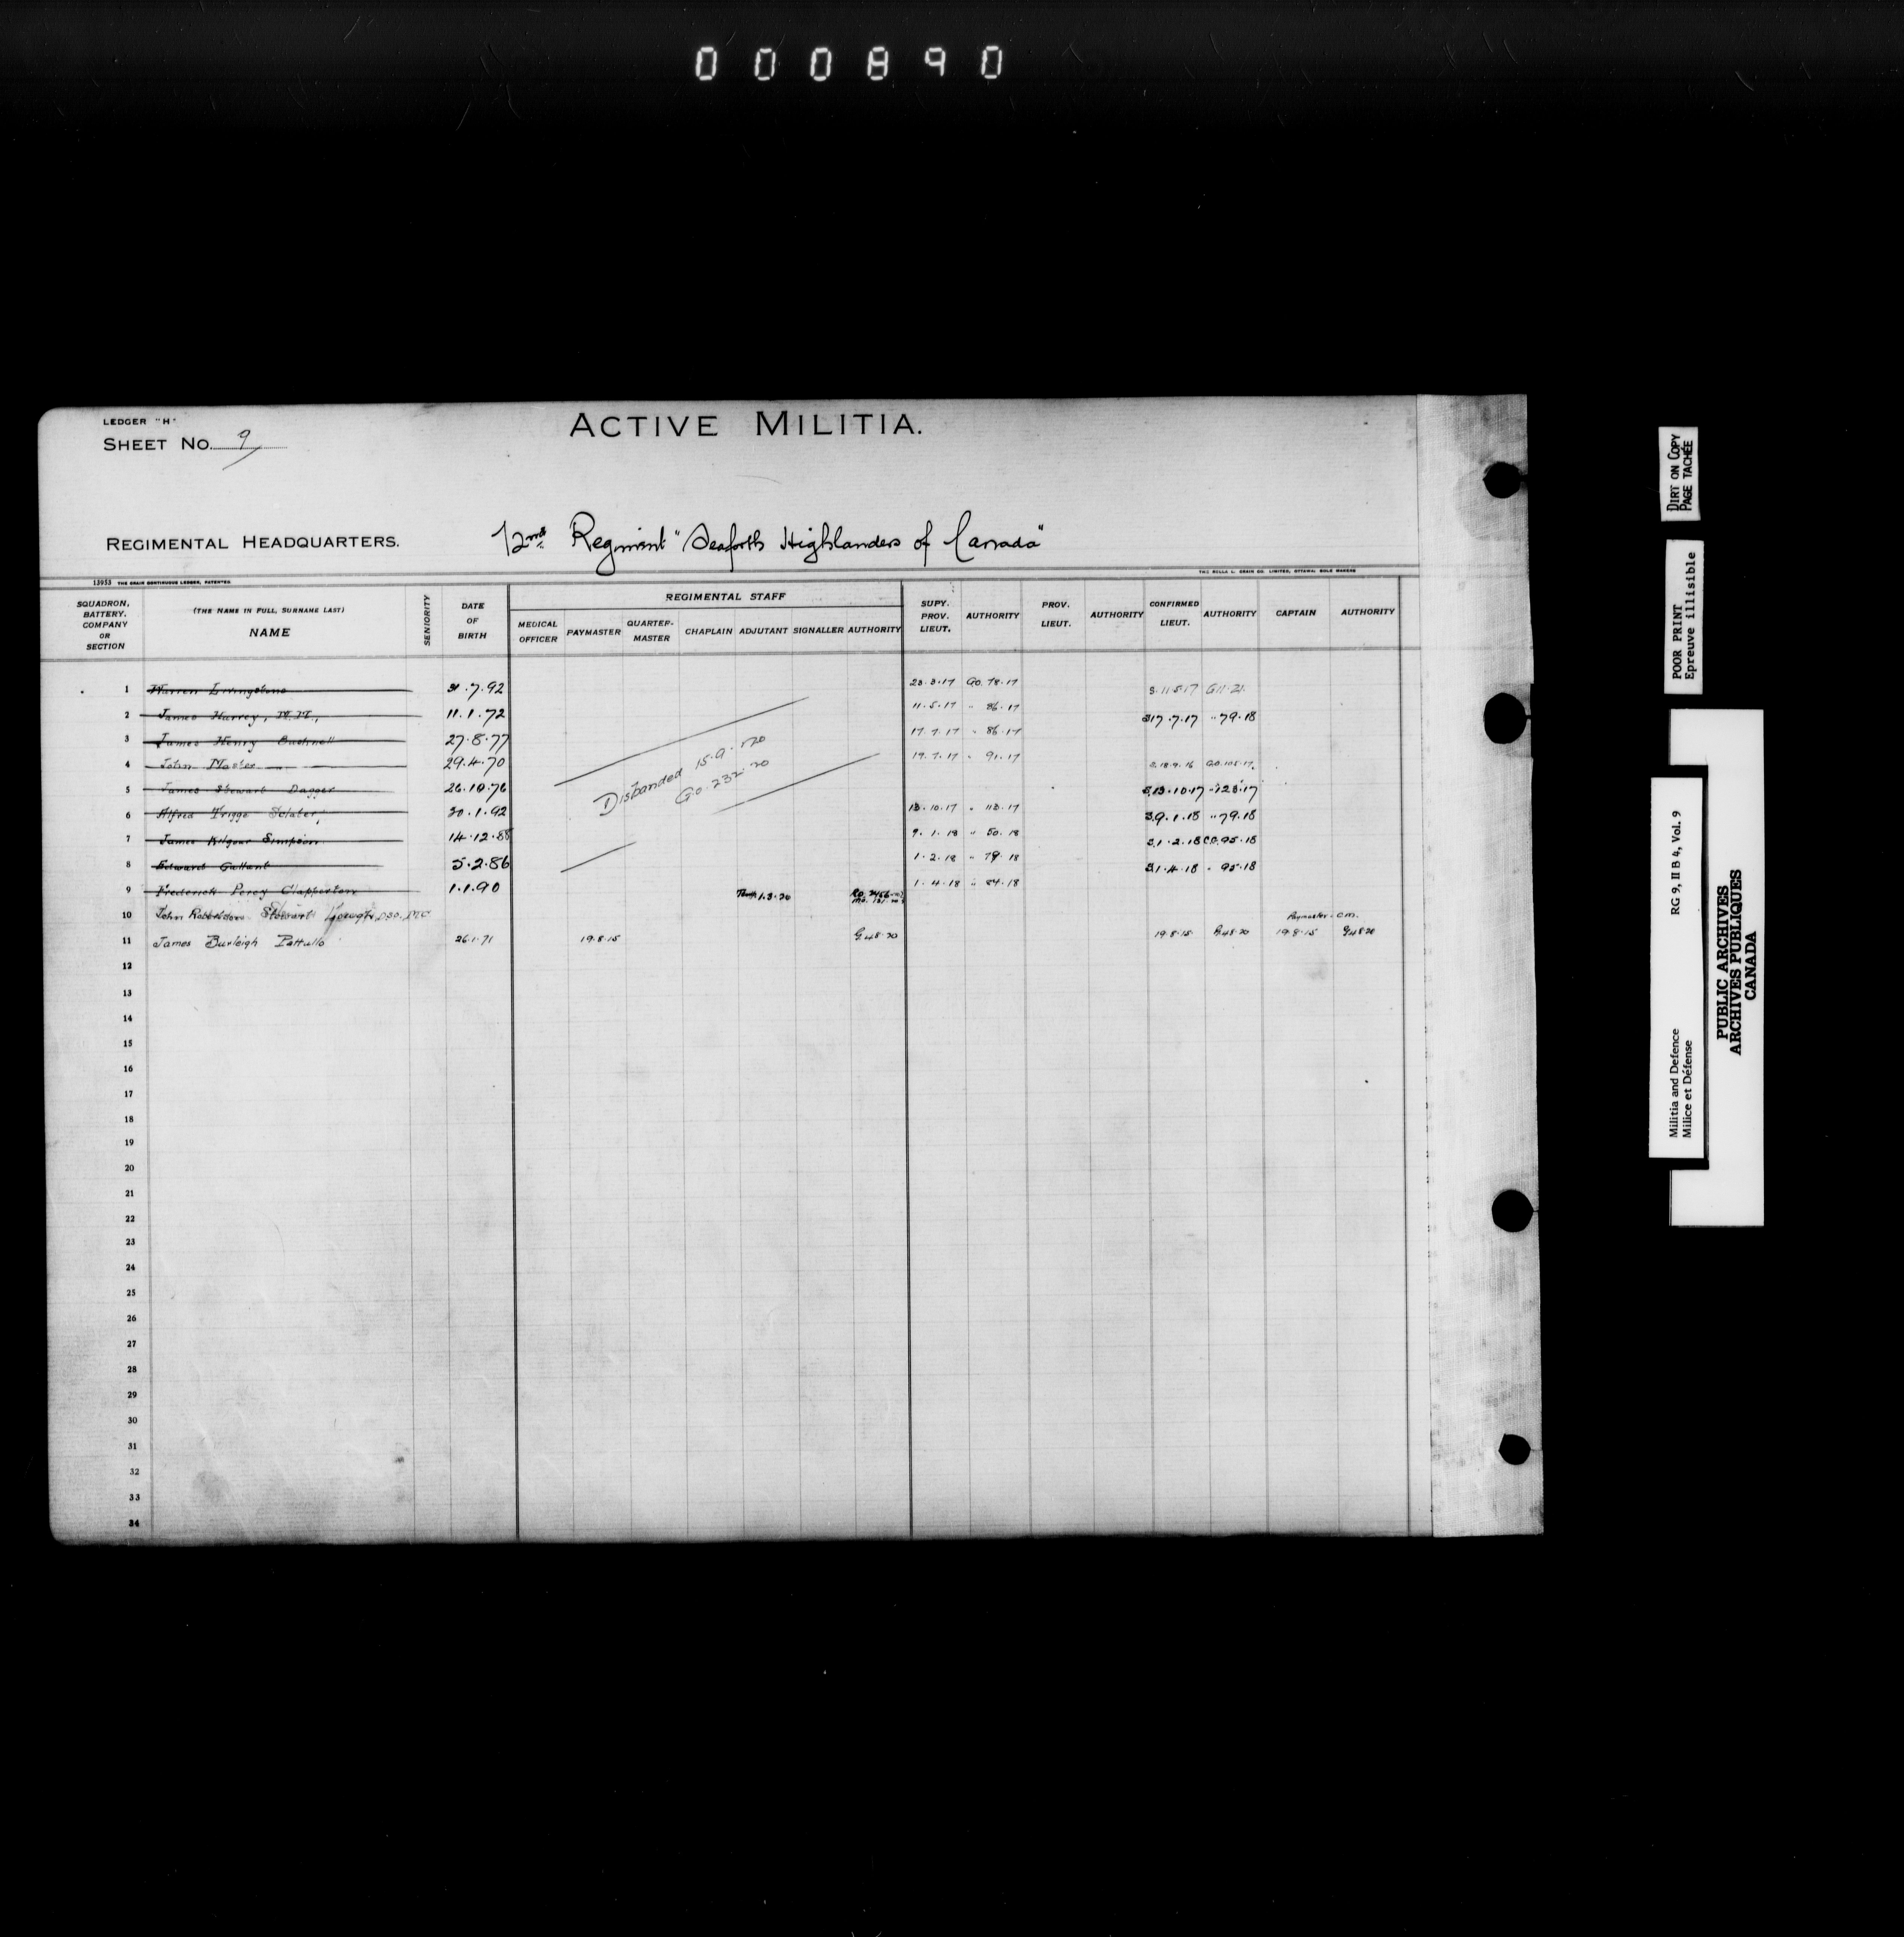 000890
LEDGER "H"
SHEET NO. 9
ACTIVE MILITIA.
REGIMENTAL HEADQUARTERS. 72nd Regiment "Seaforth Highlanders of Canada"
13953 THE CRAIN CONTINUOUS LEDGER, PATENTED. THE ROLLA L. CRAIN CO. LIMITED, OTTAWA, SOLE MAKERS
SQUADRON, BATTERY, COMPANY OR SECTION
(THE NAME IN FULL, SURNAME LAST)
NAME
SENIORITY
DATE OF BIRTH
REGIMENTAL STAFF
MEDICAL OFFICER PAYMASTER QUARTER-MASTER CHAPLAIN ADJUTANT SIGNALLER AUTHORITY
SUPY. PROV. LIEUT. AUTHORITY PROV. LIEUT. AUTHORITY CONFIRMED LIEUT. AUTHORITY CAPTAIN AUTHORITY
1 Warren Livingstone 31.7.92 23.3.17 GO. 78.17 3.11.5.17 G11.21
2 James Harvey, M.M., 11.1.72 11.5.17 " 86.17 17.7.17 " 79.18
3 James Henry Bushnell 27.8.77 17.7.17 " 86.17
4 John Master 29.4.70 19.7.17 " 91.17 18.9.16 G.O.105.17
5 James Stewart Dagger 26.10.76 13.10.17 " 123.17
6 Alfred Trigge Sclater 30.1.92 13.10.17 " 113.17 9.1.18 " 79.18
7 James Kilgour Simpson 14.12.88 9.1.18 " 50.18 1.2.18 G.O.95.18
8 Edward Gallant 5.2.86 1.2.18 " 79.18 1.4.18 " 95.18
9 Frederick Percy Clapperton 1.1.90 1.4.18 " 84.18
Disbanded 15.9.1920
G.O. 232.20
10 John Robertson Stewart DSO. MC 1.3.20
11 James Burleigh Pattullo 26.1.71 19.8.15 G.48.20 19.8.15 G.48.20 Paymaster. C.M. 19.8.15 G.48.20
12
13
14
15
16
17
18
19
20
21
22
23
24
25
26
27
28
29
30
31
32
33
34
DIRT ON COPY
PAGE TACHÉE
POOR PRINT
Epreuve illisible
Militia and Defence RG 9, II B 4, Vol. 9
Milice et Défense
PUBLIC ARCHIVES
ARCHIVES PUBLIQUES
CANADA